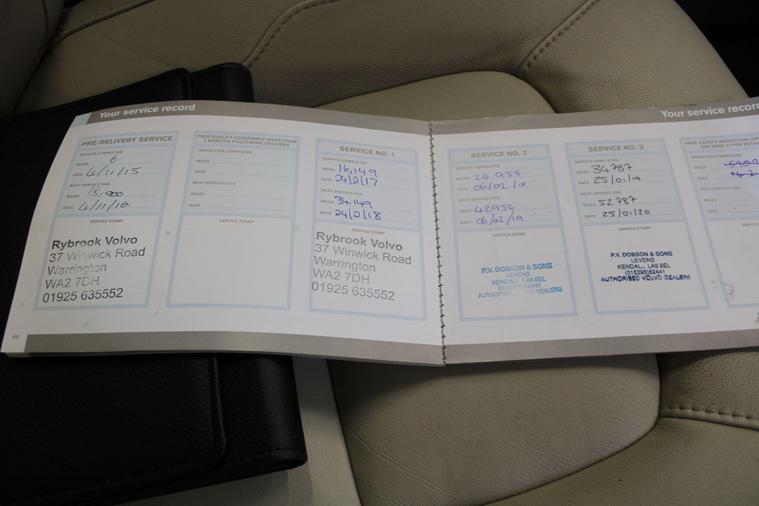 Your service record
PRE-DELIVERY SERVICE
SERVICE COMPLETED
MILES 6
DATE 4/11/15
NEXT SERVICE DUE
MILES 18,000
DATE 4/11/16.
SERVICE STAMP
Rybrook Volvo
37 Winwick Road
Warrington
WA2 7DH
01925 635552
44
FREE QUALITY ASSURANCE INSPECTION
3 MONTHS FOLLOWING DELIVERY
INSPECTION COMPLETED
MILES
DATE
NEXT SERVICE DUE
MILES
DATE
SERVICE STAMP
SERVICE NO. 1
SERVICE COMPLETED
MILES 16,149
DATE 24/2/17
NEXT SERVICE DUE
MILES 34,149
DATE 24/2/18
SERVICE STAMP
Rybrook Volvo
37 Winwick Road
Warrington
WA2 7DH
01925 635552
Your service record
SERVICE NO. 2
SERVICE COMPLETED
MILES 24954
DATE 06/02/18
NEXT SERVICE DUE
MILES 42954
DATE 06/02/19
SERVICE STAMP
P.V. DOBSON & SONS
LEVENS
KENDAL, LA8 8EL
AUTHORISED VOLVO DEALERS
SERVICE NO. 3
SERVICE COMPLETED
MILES 34787
DATE 25/01/19
NEXT SERVICE DUE
MILES 52787
DATE 25/01/20
SERVICE STAMP
P.V. DOBSON & SONS
LEVENS
KENDAL, LA8 8EL
(015395)62441
AUTHORISED VOLVO DEALERS
FREE SAFETY INSPECTION
INSPECTION COMPLETED
MILES
DATE
NEXT SERVICE DUE
MILES
DATE